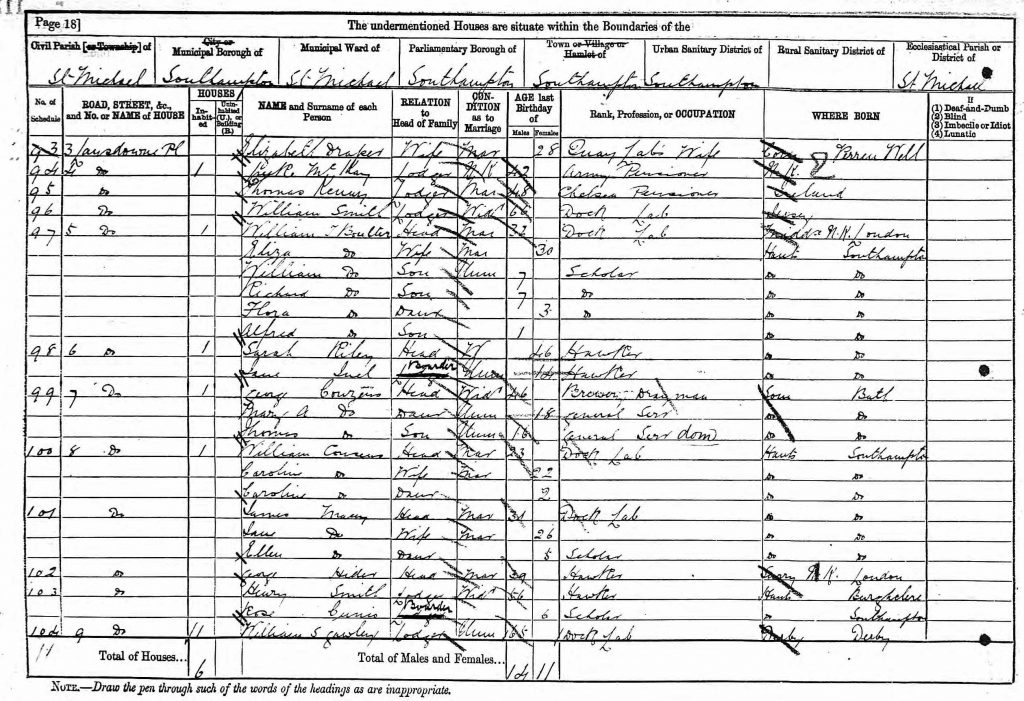 Page 18]
The undermentioned Houses are situate within the Boundaries of the
Civil Parish [or Township] of City or Municipal Borough of Municipal Ward of Parliamentary Borough of Town or Village or Hamlet of Urban Sanitary District of Rural Sanitary District of Ecclesiastical Parish or District of
St Michael Southampton St Michael Southampton Southampton Southampton St Michael
No. of Schedule ROAD, STREET, &c., and No. or NAME of HOUSE HOUSES In-habit-ed Unin-habited (U.), or Building (B.) NAME and Surname of each Person RELATION to Head of Family CON-DITION as to Marriage AGE last Birthday of Males Females Rank, Profession, or OCCUPATION WHERE BORN If (1) Deaf-and-Dumb (2) Blind (3) Imbecile or Idiot (4) Lunatic
93 3 Lansdowne Pl Elizabeth Draper Wife Mar 28 Quay Lab's Wife Perren Well
94 4 Do 1 Lodger N.K. 42 Army Pensioner N.K.
95 Do Thomas Lodger Mar 48 Chelsea Pensioner Ireland
96 Do William Smith Lodger Widr 66 Dock Lab
97 5 Do 1 William T Boulter Head Mar 32 Dock Lab Middx N.K. London
Eliza Do Wife Mar 30 Hants Southampton
William Do Son Unm 7 Scholar Do Do
Richard Do Son 7 Do Do Do
Flora Do Daur 3 Do Do Do
Alfred Do Son 1 Do Do
98 6 Do 1 Sarah Riley Head W 46 Hawker Do Do
Jane Boarder Unm 14 Hawker Do Do
99 7 Do 1 George Couzens Head Widr 46 Brewer Drayman Som Bath
Mary A Do Daur Unm 18 General Serv Do Do
Thomas Do Son Unm 16 General Serv dom Do Do
100 8 Do 1 William Couzens Head Mar 23 Dock Lab Hants Southampton
Caroline Do Wife Mar 22 Do Do
Caroline Do Daur 2 Do Do
101 Do James Macey Head Mar 31 Dock Lab Do Do
Jane Do Wife Mar 26 Do Do
Ellen Do Daur 5 Scholar Do Do
102 Do George Hider Head Mar 39 Hawker Surry N.K. London
103 Do Henry Smith Lodger Widr 56 Hawker Hants Burghclere
Rose Boarder 6 Scholar Do Southampton
104 9 Do 1 William S Lodger Unm Dock Lab Derby Derby
11 Total of Houses... 6 Total of Males and Females... 14 11
NOTE.—Draw the pen through such of the words of the headings as are inappropriate.